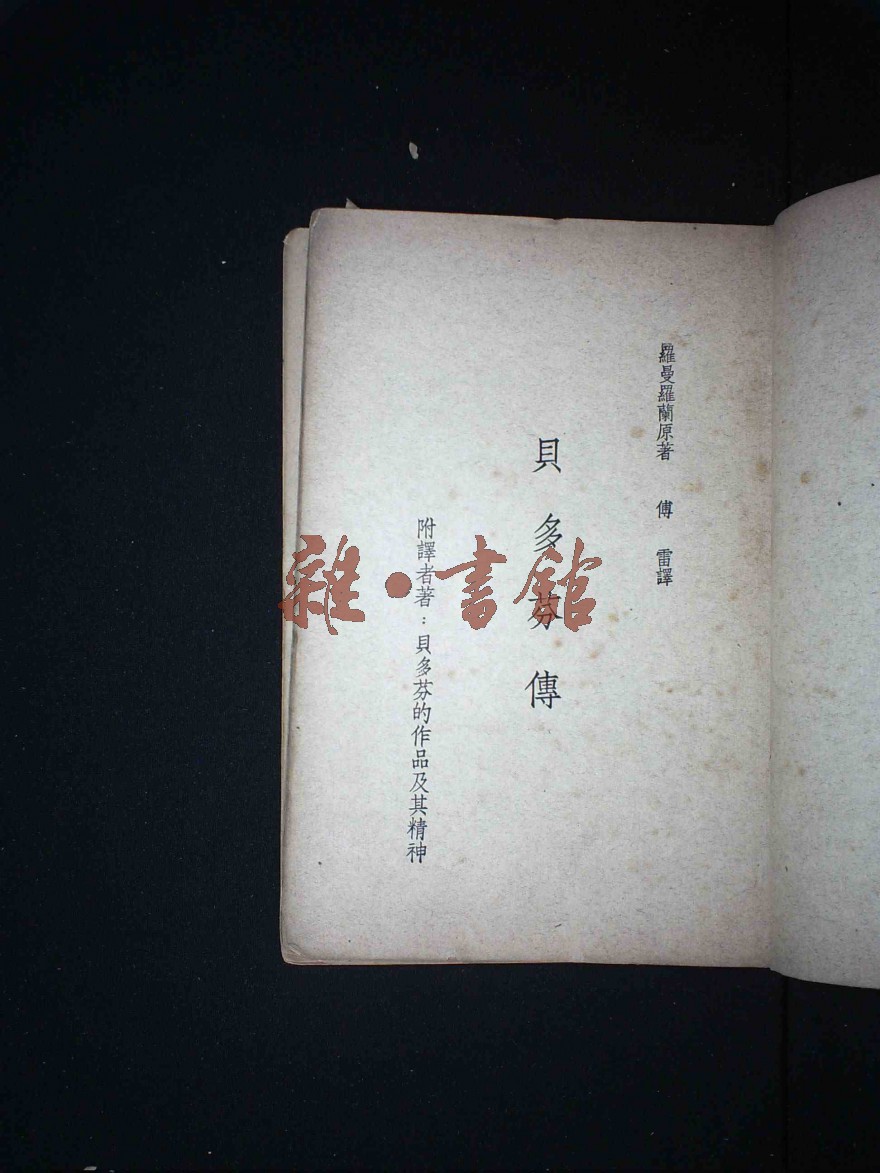 羅曼羅蘭原著　傅雷譯
貝多芬傳
附譯者著：貝多芬的作品及其精神
雜·書館